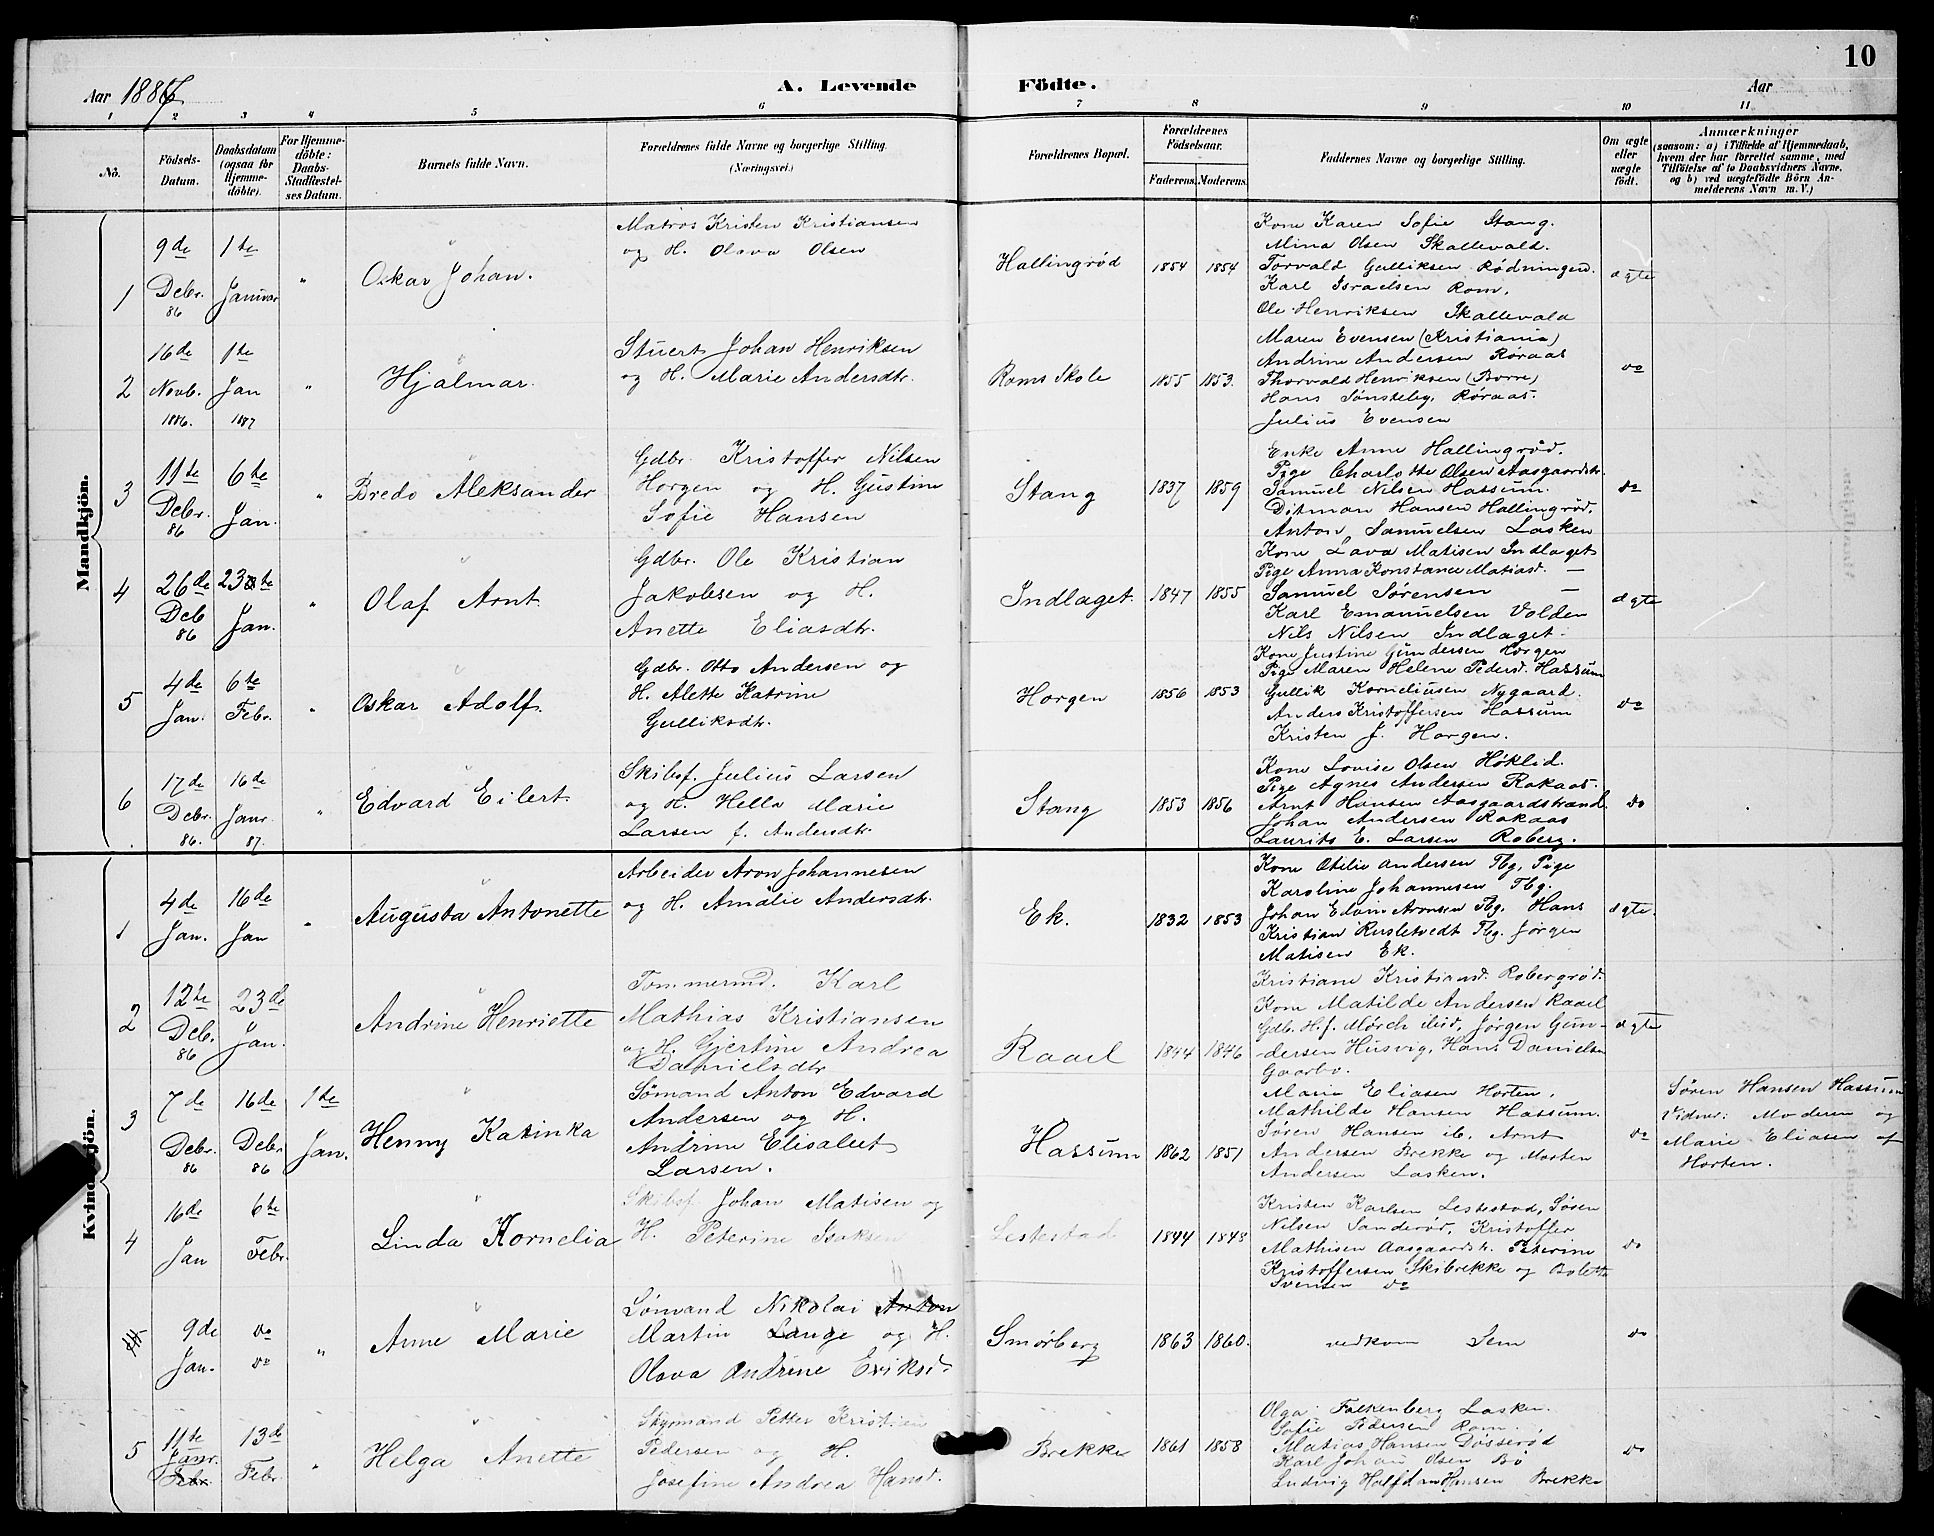 Aar 1887
A. Levende Födte.
Aar
10
1 2 3 4 5 6 7 8 9 10 11
No.
Födsels-Datum.
Daabsdatum (ogsaa för Hjemmedöbte).
For Hjemmedöbte: Daabs-Stadfæstelses Datum.
Barnets fulde Navn.
Forældrenes fulde Navne og borgerlige Stilling. (Næringsvei.)
Forældrenes Bopæl.
Forældrenes Födselsaar.
Faderens. Moderens.
Faddernes Navne og borgerlige Stilling.
Om ægte eller uægte födt.
Anmærkninger (saasom: a) i Tilfælde af Hjemmedaab, hvem der har forrettet samme, med Tilföielse af to Daabsvidners Navne, og b) ved uægtefödte Börn Anmelderens Navn m. V.)
Mandkjön.
1 9de Debr. 86 1te Januar " Oskar Johan.
Matros Kristen Kristiansen
og H. Olava Olsen
Hallingrød 1854 1854
Kone Karen Sofie Stang.
Mina Olsen Skallevald.
Torvald Gulliksen Rødningen.
Karl Israelsen Rom.
Ole Henriksen Skallevald
ægte
2 16de Novb. 1886. 1te Jan 1887 " Hjalmar.
Stuert Johan Henriksen
og H. Marie Andersdtr.
Roms Skole 1855 1853.
Maren Evensen (Kristiania)
Andrine Andersen Røraas
Thorvald Henriksen (Borre)
Hans Sønsteby, Røraas.
Julius Evensen
do
3 11te Debr. 86 6te Jan. " Bredo Aleksander
Gdbr. Kristoffer Nilsen
Horgen og H. Gustine
Sofie Hansen
Stang 1837 1859
Enke Anne Hallingrød.
Pige Charlotte Olsen Aasgaardstr.
Samuel Nilsen Hassum.
Ditman Hansen Hallingrød.
Anton Samuelsen Lasken
do
4 26de Deb 86 23te Jan. " Olaf Arnt.
Gdbr. Ole Kristian
Jakobsen og H.
Anette Eliasdtr.
Indlaget. 1847 1855
Kone Lava Matisen Indlaget
Pige Anna Konstance Matiasd. —
Samuel Sørensen —
Karl Emanuelsen Volden
Nils Nilsen Indlaget.
ægte
5 4de Jan. 6te Febr. " Oskar Adolf.
Gdbr. Otto Andersen og
H. Alette Katrine
Gulliksdtr.
Horgen 1856 1853
Kone Justine Gundersen Horgen
Pige Maren Helene Pedersd. Hassum
Gullik Korneliusen Nygaard.
Anders Kristoffersen Hassum
Kristen J. Horgen.
do
6 17de Debr. 86. 16de Janr. 87. " Edvard Eilert.
Skibsf. Julius Larsen
og H. Hella Marie
Larsen f. Andersdtr.
Stang 1853 1856
Kone Lovise Olsen Høklid.
Pige Agnes Andersen Rakaas.
Arnt Hansen Aasgaardstrand.
Johan Andersen Rakaas
Laurits E. Larsen Roberg.
do
Kvindekjön.
1 4de Jan. 16de Jan " Augusta Antonette
Arbeider Aron Johannesen
og H. Amalie Andersdtr.
Ek. 1832 1853
Kone Otilie Andersen Tbg, Pige
Karoline Johannesen Tbg.
Johan Edvin Aronsen Tbg. Hans
Kristian Rusletvedt Tbg. Jørgen
Matisen Ek.
ægte.
2 12te Debr. 86 23de Jan. Andrine Henriette
Tømmermd. Karl
Mathias Kristiansen
og H. Gjertine Andrea
Danielsdtr
Raael 1844 1846
Kristiane Kristiansd. Robergrød.
Kone Matilde Andersen Raael
Gdb. H. J. Mørch ibid, Jørgen Gun-
dersen Husvig, Hans Danielsen
Gaarbo.
ægte
3 7de Debr. 86 16de Debr. 86 1te Jan. Henny Katinka
Sømand Anton Edvard
Andersen og H.
Andrine Elisabet
Larsen.
Hassum 1862 1851
Maria Eliasen Horten,
Mathilde Hansen Hassum.
Søren Hansen ib. Arnt
Andersen Brekke og Morten
Andersen Lasken.
do
Søren Hansen Hassum
Vidner: Moderen og
Marie Eliasen af
Horten.
4 16de Jan 6te Febr. Linda Kornelia
Skibsf. Johan Matisen og
H. Peterine Isaksen
Lestestad 1844 1848
Kristen Karlsen Lestestad, Søren
Nilsen Sanderød, Kristoffer
Mathisen Aasgaardstr. Peterine
Kristoffersen Skibrekke og Bolette
Svensen do
do
9de Jan. do do " Anne Marie
Sømand Nikolai Anton
Martin Lange og H.
Olava Andrine Eriksd.
Smørberg 1863 1860.
vedkom Sem
do
5 11te Janr. Febr. 13de Febr. " Helga Anette
Styrmand Petter Kristian
Pedersen og H.
Josefine Andrea Hansd.
Brekke 1861 1858
Olga Falkenberg Lasken.
Sofie Pedersen Rom.
Matias Hansen Døsserød
Karl Johan Olsen Bø
Ludvig Halfdan Hansen Brekke
do